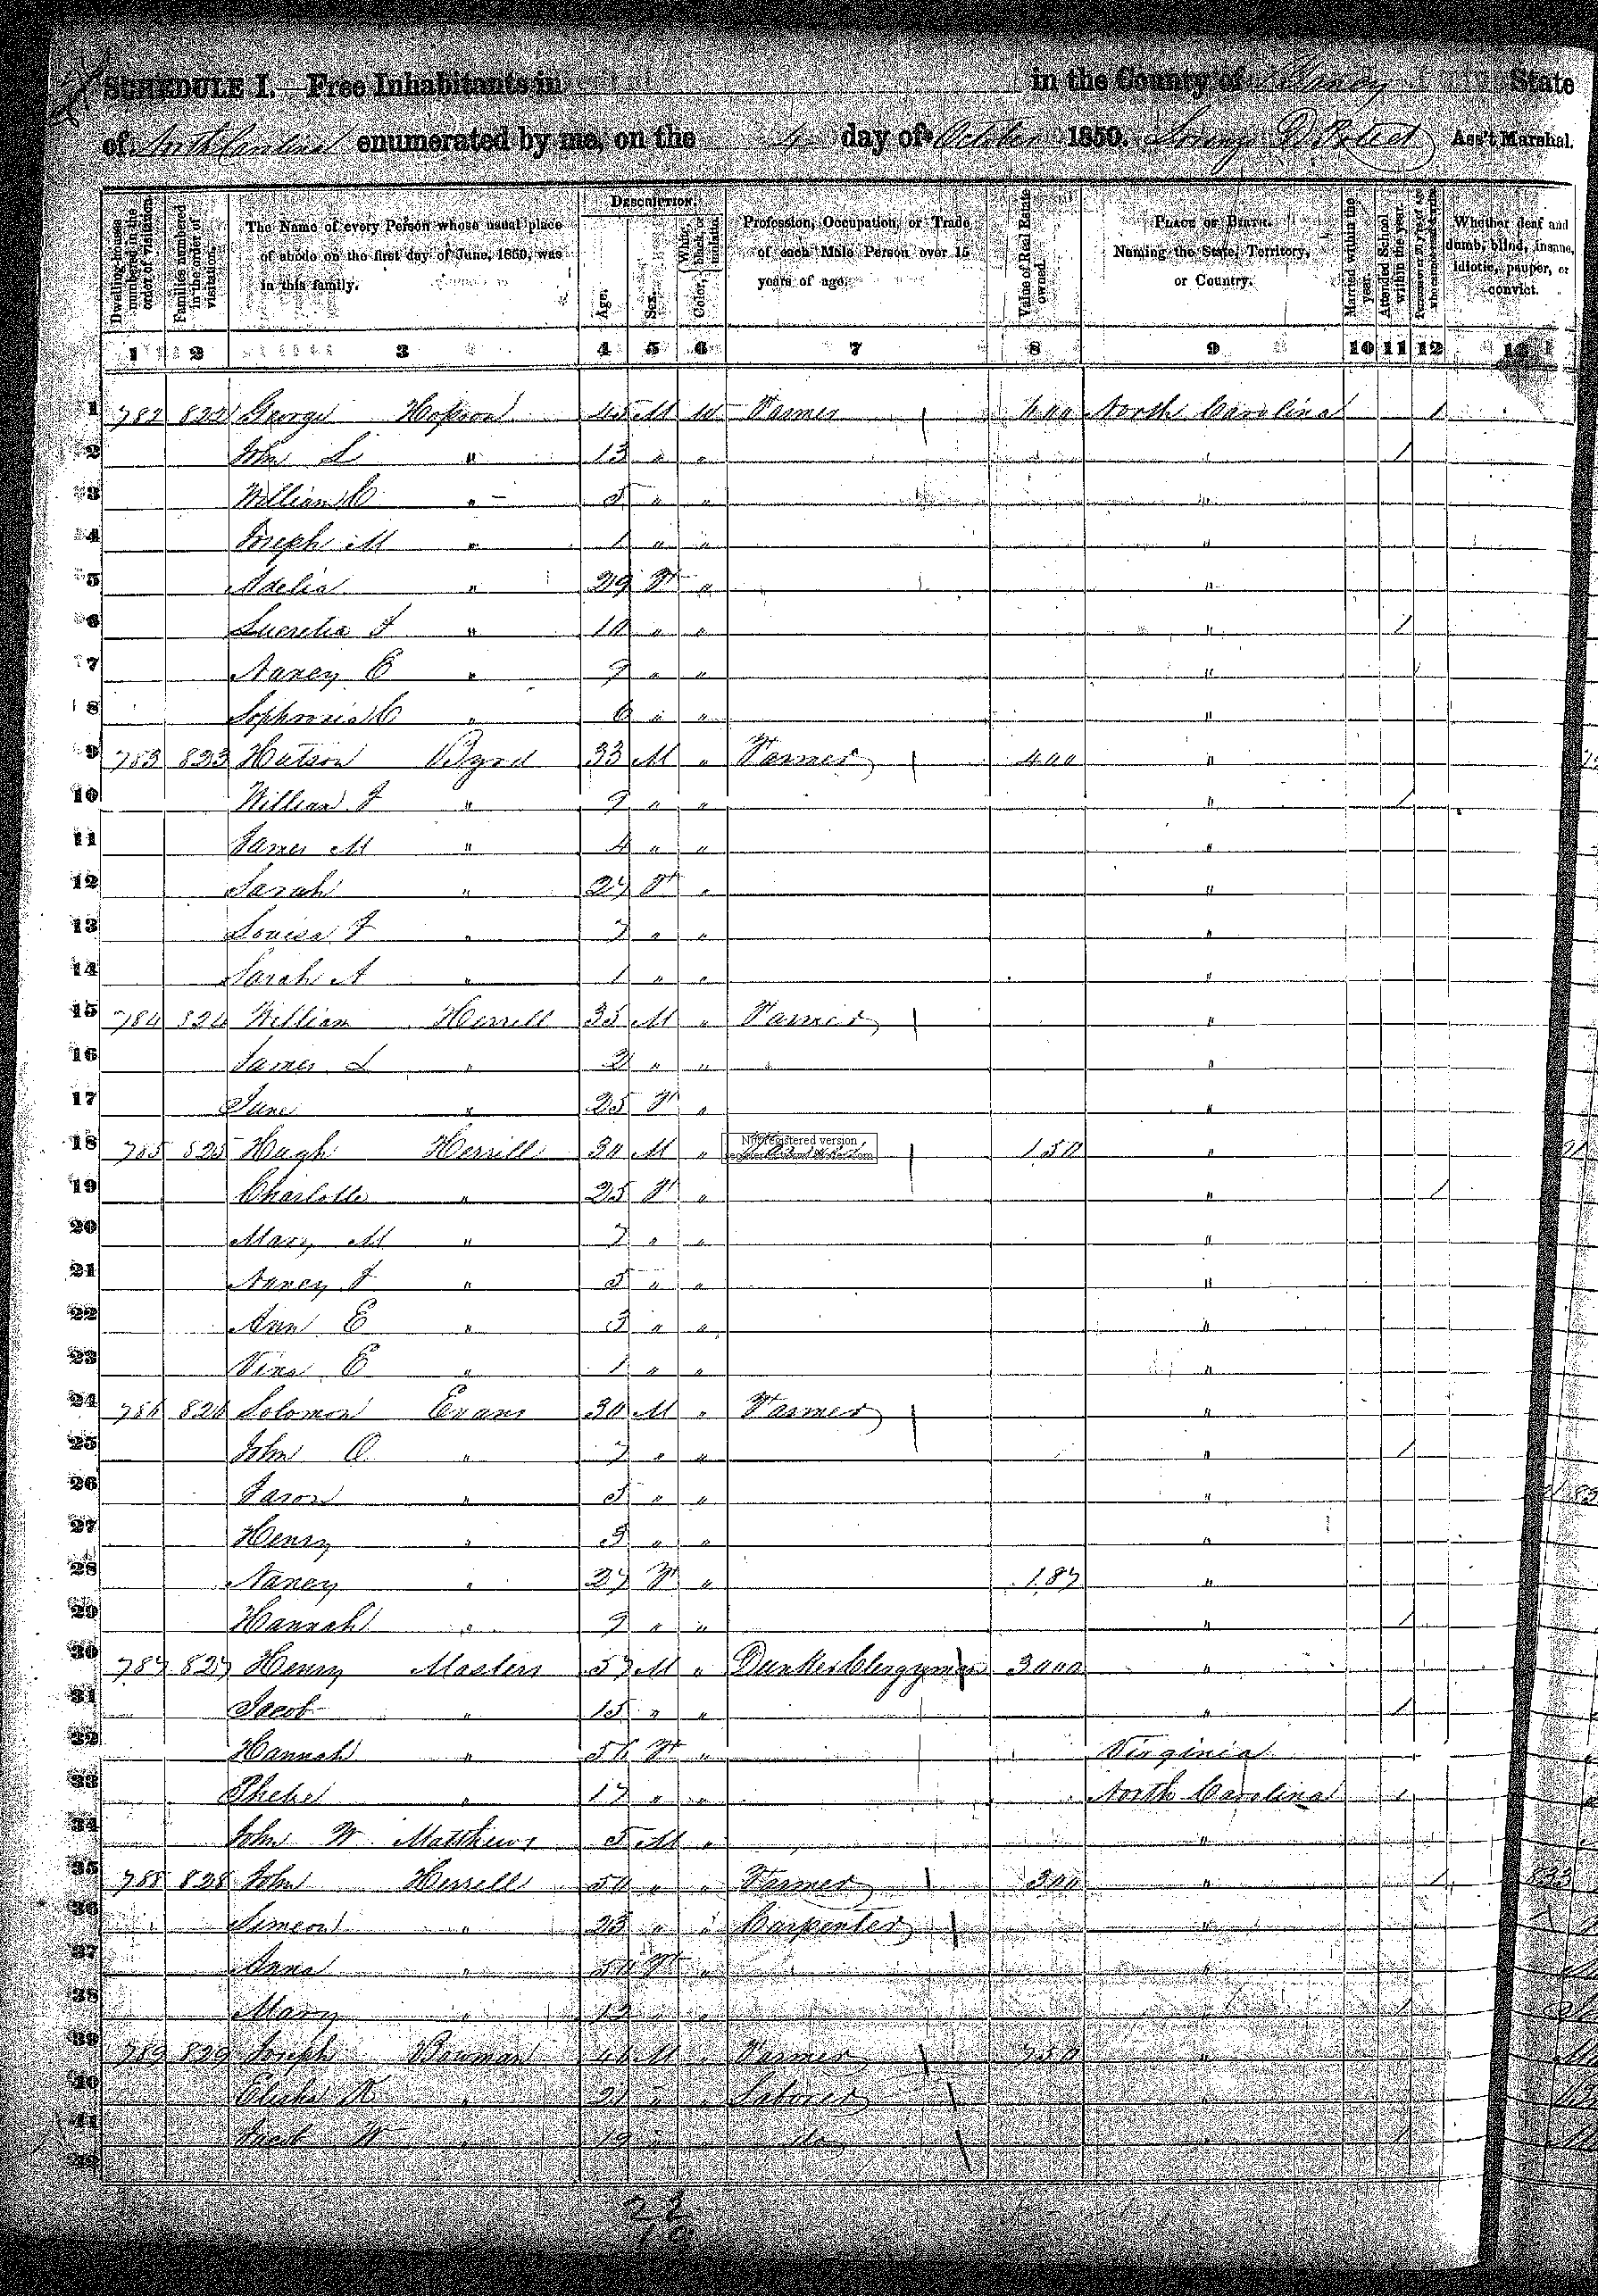 SCHEDULE I.—Free Inhabitants in in the County of Yancey State
of North Carolina enumerated by me, on the day of October 1850. Ass't Marshal.
Dwelling-houses numbered in the order of visitation.
Families numbered in the order of visitation.
The Name of every Person whose usual place of abode on the first day of June, 1850, was in this family.
DESCRIPTION.
Age.
Sex.
Color, White, black, or mulatto.
Profession, Occupation, or Trade of each Male Person over 15 years of age.
Value of Real Estate owned.
PLACE OF BIRTH. Naming the State, Territory, or Country.
Married within the year.
Attended School within the year.
Whether deaf and dumb, blind, insane, idiotic, pauper, or convict.
1 2 3 4 5 6 7 8 9 10 11 12 13
1 782 822 George Hopson 45 M W Farmer 600 North Carolina 1
2 John L " 13 " " " 1
3 William C " 5 " " "
4 Joseph M " 1 " " "
5 Adelia " 29 F " "
6 Lucretia J " 10 " " " 1
7 Nancy E " 9 " " "
8 Sophronia C " 6 " " "
9 783 823 Hutson Byrd 33 M " Farmer 400 "
10 William J " 9 " " " 1
11 James M " 4 " " "
12 Sarah " 27 F " "
13 Louisa J " 7 " " "
14 Sarah A " 1 " " "
15 784 824 William Herrell 35 M " Farmer "
16 James L " 2 " " "
17 Jane " 25 F " "
18 785 825 Hugh Herrill 30 M " 150 "
19 Charlotte " 25 F " " 1
20 Mary M " 7 " " "
21 Nancy J " 5 " " "
22 Ann E " 3 " " "
23 Vina E " 1 " " "
24 786 826 Solomon Evans 30 M " Farmer "
25 John O " 7 " " " 1
26 Jason " 5 " " "
27 Henry " 3 " " "
28 Nancy " 27 F " 187 "
29 Hannah " 9 " " " 1
30 787 827 Henry Masters 57 M " Dunker Clergyman 3000 "
31 Jacob " 15 " " " 1
32 Hannah " 56 F " Virginia
33 Phebe " 17 " " North Carolina 1
34 John W Matthews 5 M " "
35 788 828 John Herrell 50 " " Farmer 300 " 1
36 Simeon " 23 " " Carpenter "
37 Anna " 50 F " "
38 Mary " 13 " " 1
39 789 829 Joseph Bowman 46 M " Farmer 750 "
40 Elisha " 21 " " Laborer "
41 Jacob W " 19 " " do " 1
42